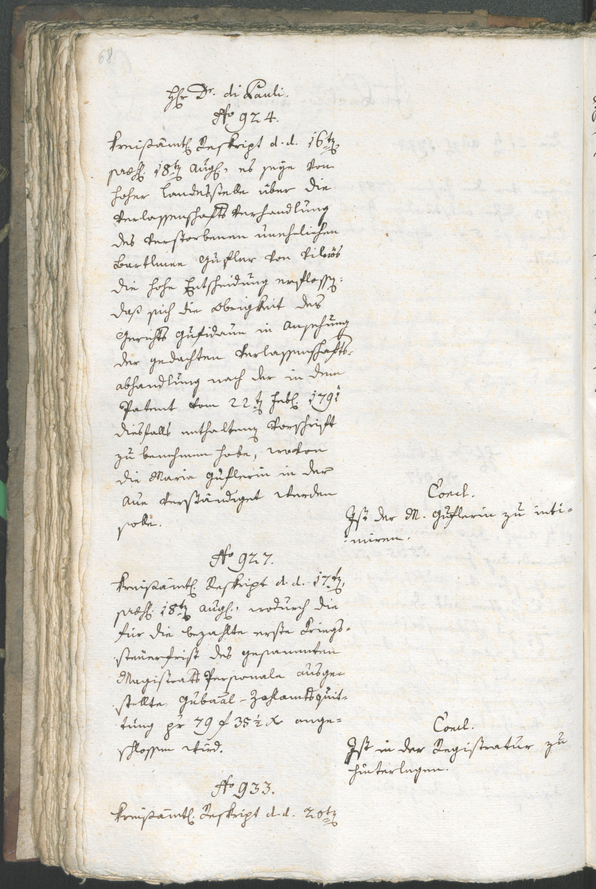 68
Hr. Dr. di Pauli.
No 924.
Kreisämtl. Reskript d. d. 16t.
präs. 18t. Augl. es seye von
hoher Landesstelle über die
Verlassenschafts Verhandlung
des verstorbenen unehelichen
Bartlmee Gufler von Vilnös
die hohe Entscheidung erflossen:
daß sich die Obrigkeit des
Gerichts Gufidaun in Ansehung
der gedachten Verlassenschafts-
abhandlung nach der in dem
Patent vom 22t. Febl. 1791
diesfalls enthaltenen Vorschrift
zu benehmen habe, wovon
die Maria Guflerin in der
Au verständiget werden
solle.
Concl.
Ist der M. Guflerin zu inti-
miren.
No 927.
Kreisämtl. Reskript d. d. 17t.
präs. 18t. Augl. wodurch die
für die bezahlte erste Kriegs-
steuerfrist des gesammten
Magistrats Personale ausge-
stellte Gubnial-Zahlamtsquit-
tung pr 79 f 35½ x ange-
schlossen wird.
Concl.
Ist in der Registratur zu
hinterlegen.
No 933.
Kreisämtl. Reskript d. d. 20t.